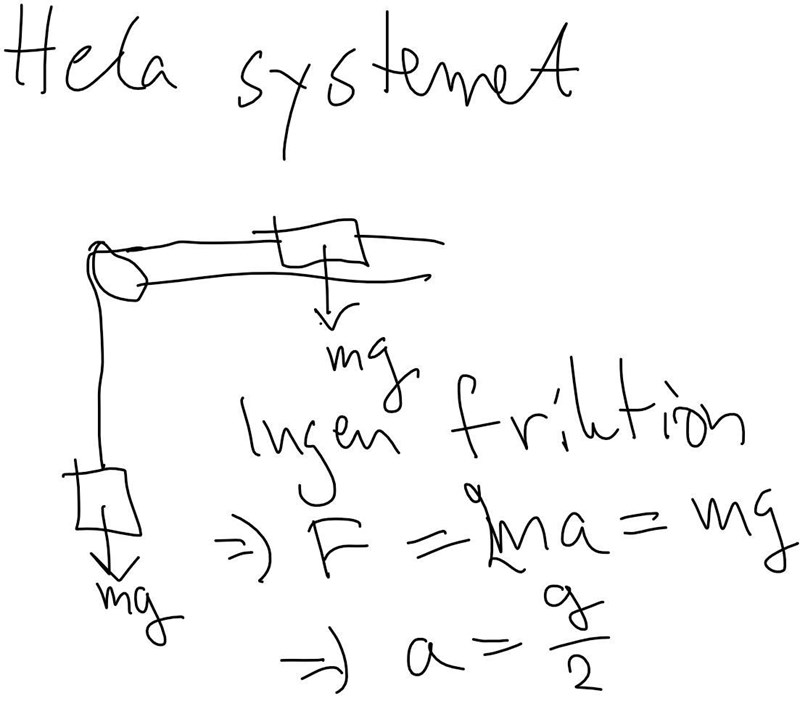 Hela systemet
mg
Ingen friktion
⇒ F = 2ma = mg
mg
⇒ a = g/2